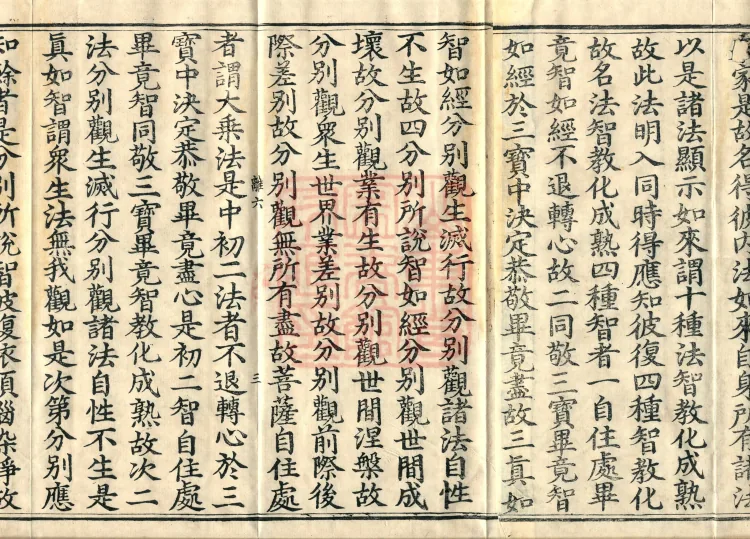 家是故名得彼內法如來自身所有諸法
以是諸法顯示如來謂十種法智教化成熟
故此法明入同時得應知彼復四種智教化
故名法智教化成熟四種智者一自住處畢
竟智如經不退轉心故二同敬三寶畢竟智
如經於三寶中決定恭敬畢竟盡故三真如
智如經分別觀生滅行故分別觀諸法自性
不生故四分別所說智如經分別觀世間成
壞故分別觀業有生故分別觀世間涅槃故
分別觀眾生世界業差別故分別觀前際後
際差別故分別觀無所有盡故菩薩自住處
離六 三
者謂大乘法是中初二法者不退轉心於三
寶中決定恭敬畢竟盡心是初二智自住處
畢竟智同敬三寶畢竟智教化成熟故次二
法分別觀生滅行分別觀諸法自性不生是
真如智謂眾生法無我觀如是次第分別應
知餘者是分別所說智彼復依煩惱染淨故